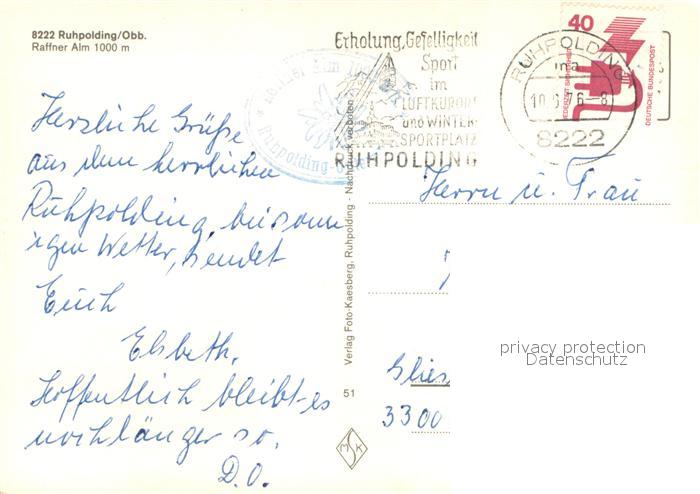 8222 Ruhpolding/Obb.
Raffner Alm 1000 m
Herzliche Grüße
aus dem herrlichen
Ruhpolding, bei sonn
igen Wetter, sendet
Euch
Elsbeth.
Hoffentlich bleibt es
noch länger so.
D.O.
Verlag Foto-Kaesberg, Ruhpolding · Nachdruck verboten
51
MSK
Erholung, Geselligkeit
Sport
im
LUFTKURORT
und WINTER
SPORTPLATZ
RUHPOLDING
RUHPOLDING
8222
40
JEDERZEIT SICHERHEIT
DEUTSCHE BUNDESPOST
Herrn u. Frau
3300
privacy protection
Datenschutz